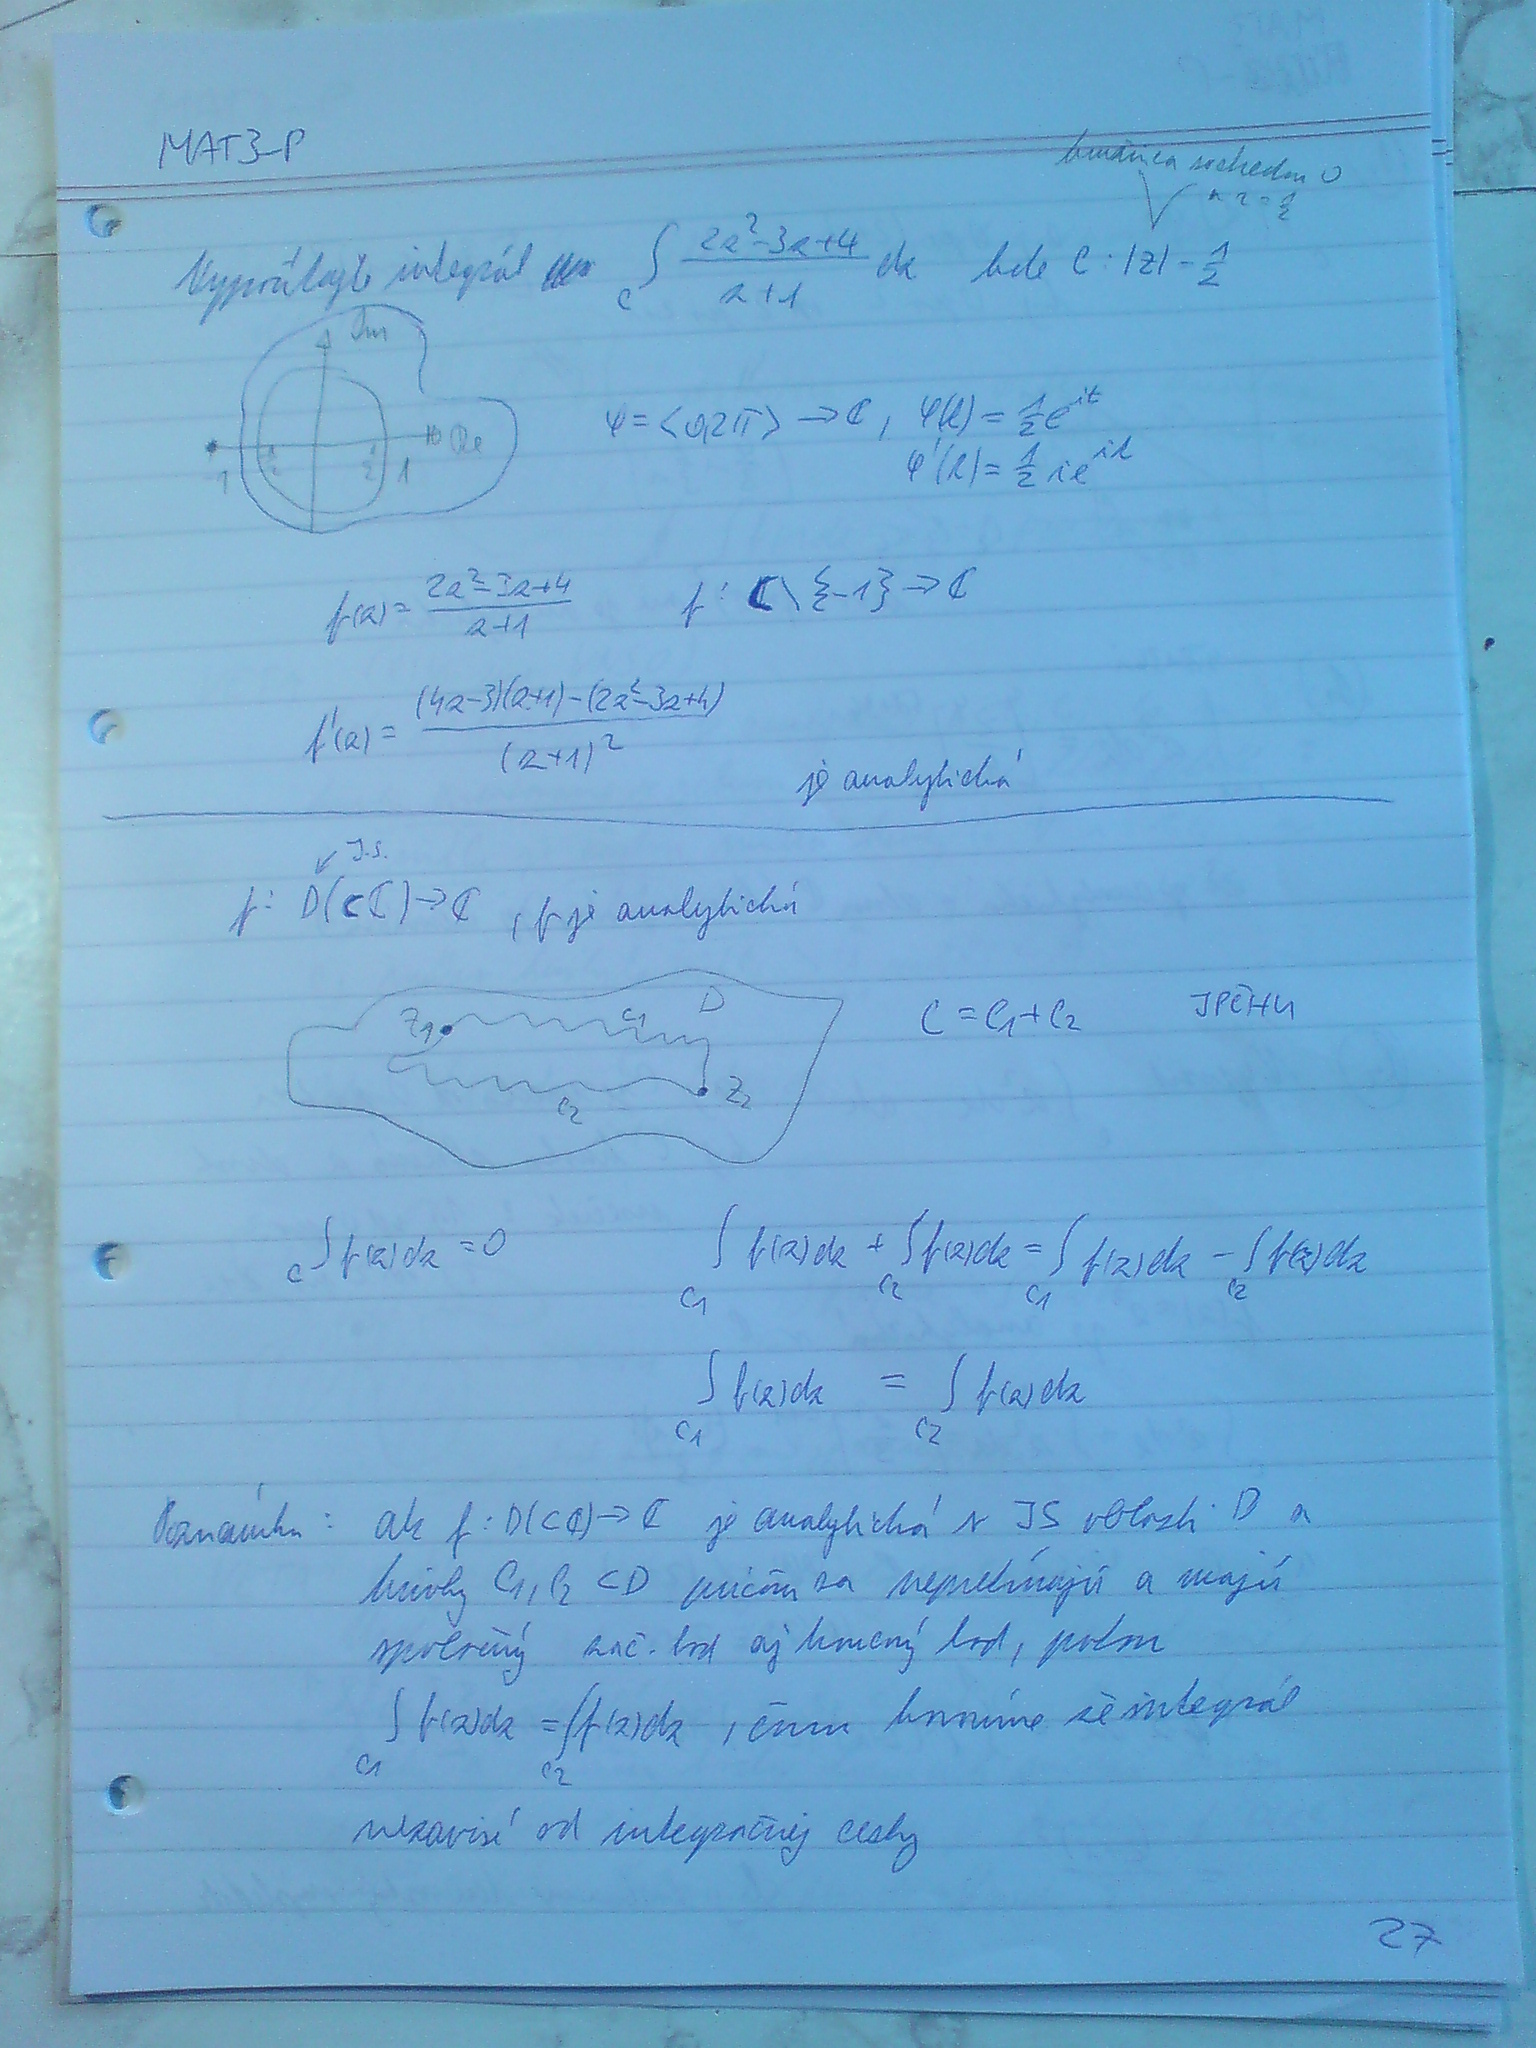 MAT3-P
kružnica so stredom 0
a r = 1/2
Vypočítajte integrál ∫_C (2z²-3z+4)/(z+1) dz kde C: |z| - 1/2
Im
Re
-1 1/2 1/2 1
φ = <0,2π> → ℂ, φ(t) = 1/2 e^{it}
φ'(t) = 1/2 i e^{it}
f(z) = (2z²-3z+4)/(z+1) f: ℂ \ {-1} → ℂ
f'(z) = ((4z-3)(z+1)-(2z²-3z+4))/(z+1)²
je analytická
J.S.
f: D(⊂ℂ) → ℂ, f je analytická
D
Z1 C1
C = C1 + C2 JPČHU
C2 Z2
∫_C f(z)dz = 0 ∫_{C1} f(z)dz + ∫_{C2} f(z)dz = ∫_{C1} f(z)dz - ∫_{C2} f(z)dz
∫_{C1} f(z)dz = ∫_{C2} f(z)dz
Poznámka: ak f: D(⊂ℂ) → ℂ je analytická v JS oblasti D a
krivky C1, C2 ⊂ D pričom sa nepretínajú a majú
spoločný zač. bod aj koncový bod, potom
∫_{C1} f(z)dz = ∫_{C2} f(z)dz, čím hovoríme že integrál
nezávisí od integračnej cesty
27